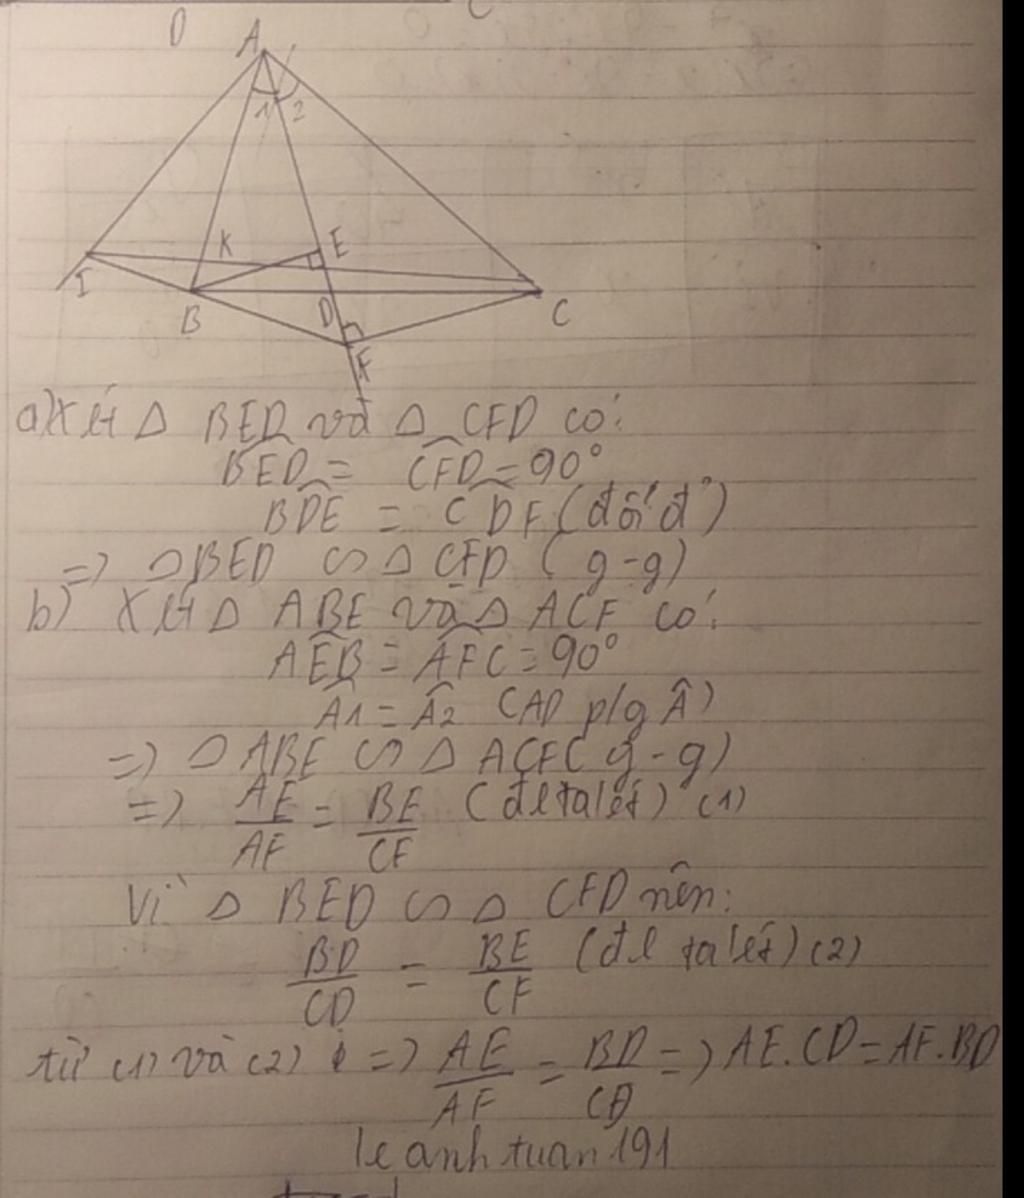 C
D
A
1 2
K E
I
B D C
F
a) Xét Δ BED và Δ CFD có:
BED̂ = CFD̂ = 90°
BDÊ = CDF̂ (đối đ²)
=> ΔBED ∽ Δ CFD (g-g)
b) Xét Δ ABE và Δ ACF có:
AEB̂ = AFĈ = 90°
Â1 = Â2 (AD p/g Â)
=> Δ ABE ∽ Δ ACF (g-g)
=> AE/AF = BE/CF (đl talét) (1)
Vì Δ BED ∽ Δ CFD nên:
BD/CD = BE/CF (đl talét) (2)
từ (1) và (2) => AE/AF = BD/CD => AE.CD = AF.BD
le anh tuan 191